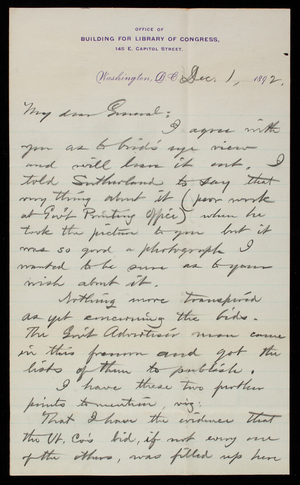 OFFICE OF
BUILDING FOR LIBRARY OF CONGRESS,
145 E. CAPITOL STREET.
Washington, D.C. Dec. 1, 1892.
My dear General:
I agree with
you as to bird's eye view
and will leave it out. I
told Sutherland to say that
very thing about it (poor work
at Gov't Printing Office) when he
took the picture to you but it
was so good a photograph I
wanted to be sure as to your
wish about it.
Nothing more transpired
as yet concerning the bids.
The Gov't Advertiser man came
in this forenoon and got the
lists of them to publish.
I have these two further
points to mention, viz:
That I have the evidence that
the Vt. Co's bid, if not every one
of the others, was filled up here